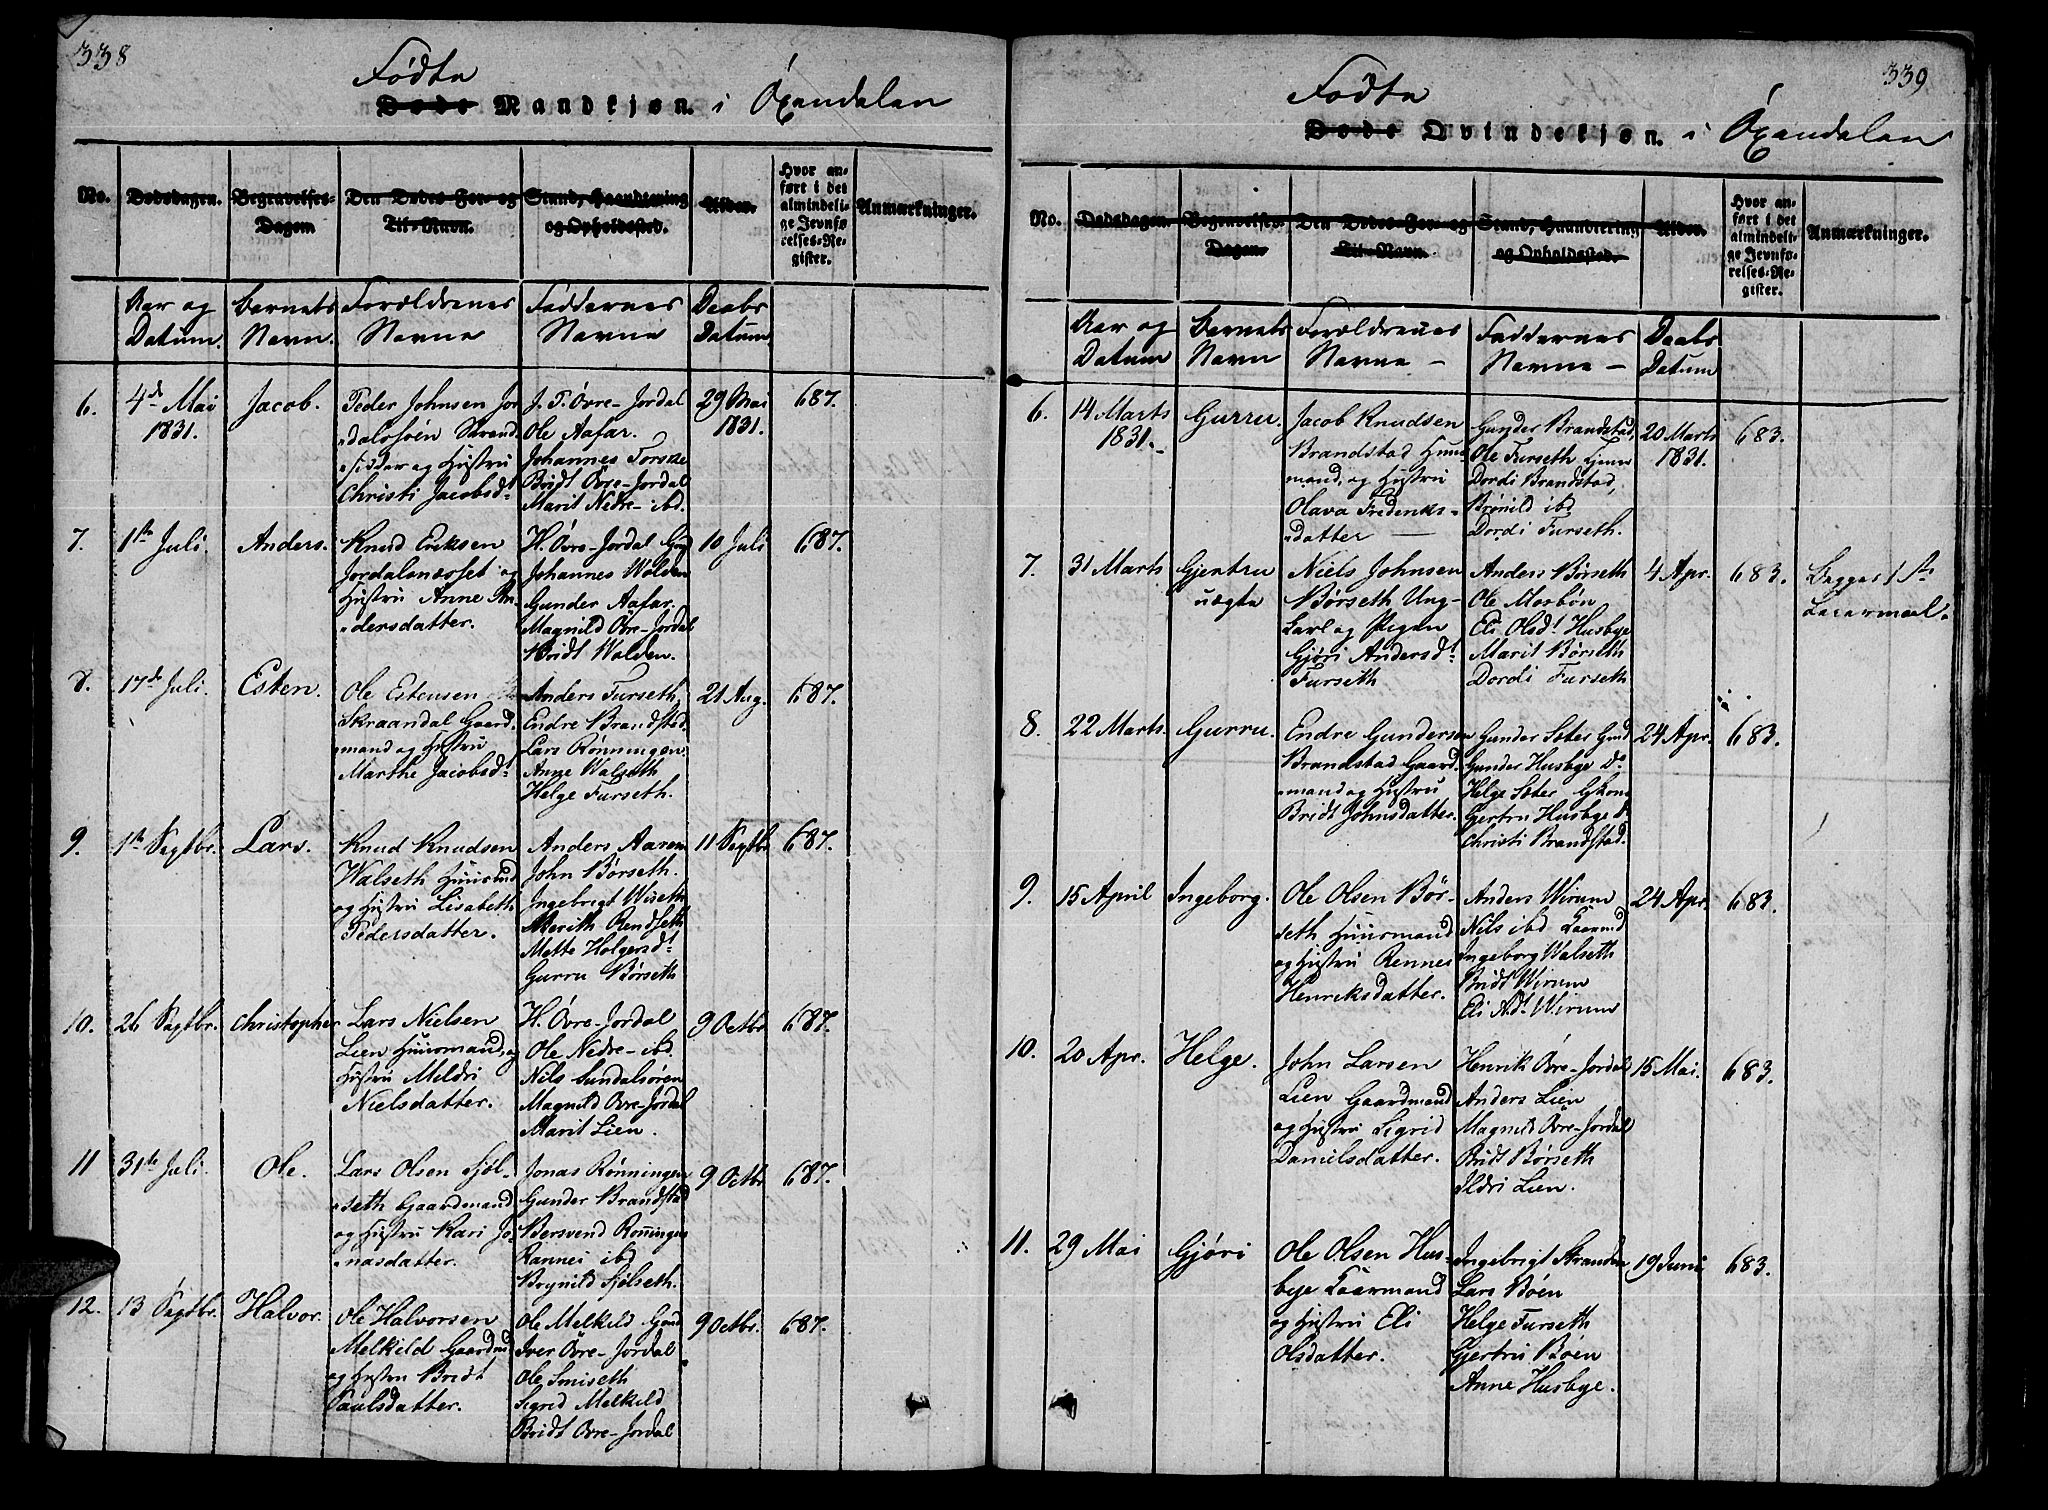 338
Födte
Døde Mandkjøn. i Øxendalen
No.
Dødsdagen.
Begravelses-
Dagen
Den Dødes For- og
Til-Navn.
Stand, Haandtering
og Opholdssted.
Alder.
Hvor an-
ført i det
almindeli-
ge Jevnfø-
relses-Re-
gister.
Anmærkninger.
Aar og
Datum.
Barnets
Navn.
Forældrenes
Navne
Faddernes
Navne
Daabs
Datum
6.
4de Mai
1831.
Jacob.
Peder Johnsen Jor
dalssøen Strand
sidder og Hustru
Christi Jacobsdt
J. P. Övre-Jordal
Ole Aafar.
Johannes Torske
Bridt Övre-Jordal
Marit Nedre-ibd.
29 Mai
1831.
687.
7.
1ste Juli.
Anders.
Knud Eriksen
Jordalsnæsset og
Hustru Anne An-
dersdatter.
H. Övre-Jordal Gmd
Johannes Wolden
Gunder Aafar.
Magnild Övre-Jordal
Bridt Wolden.
10 Juli
687.
8.
17de Juli.
Esten.
Ole Estensen
Skraandal Gaard
mand og Hustru
Marthe Jacobsdt
Anders Furseth.
Endre Brandstad.
Lars Rønningen.
Anne Walseth
Helge Furseth.
21 Aug.
687.
9.
1ste Septbr.
Lars.
Knud Knudsen
Walseth Huusmd
og Hustru Lisabeth
Pedersdatter.
Anders Aarem
John Börseth.
Ingebrigt Wiseth
Merith Rendseth
Mette Holgersdt
Gurru Börseth
11 Septbr
687.
10.
26 Septbr.
Christopher
Lars Nielsen
Lien Huusmand, og
Hustru Meldri
Nielsdatter.
H. Övre-Jordal
Ole Nedre-ibd.
Nils Sundalsören
Magnild Övre-Jordal
Marit Lien.
9 Octbr
687.
11
31te Juli.
Ole.
Lars Olsen Fjøl-
seth Gaardmand
og Hustru Kari Jo-
nasdatter.
Jonas Rønningen
Gunder Brandstad
Bersvend Rønningen
Rannei ibd
Brynild Fjølseth.
9 Octbr
687.
12.
13 Septbr.
Halvor.
Ole Halvorsen
Melkild Gaardmd
og Hustru Bridt
Paulsdatter.
Ole Melkild Gmd
Iver Övre-Jordal
Ole Smiseth
Sigrid Melkild
Bridt Övre-Jordal
9 Octbr.
687.
339
Födte
Døde Qvindekjøn. i Øxendalen
No.
Dødsdagen.
Begravelses-
Dagen.
Den Dødes For- og
Til-Navn.
Stand, Haandtering
og Opholdssted.
Alder.
Hvor an-
ført i det
almindeli-
ge Jevnfø-
relses-Re-
gister.
Anmærkninger.
Aar og
Datum
Barnets
Navn
Forældrenes
Navne –
Faddernes
Navne –
Daabs
Datum
6.
14 Marts
1831.
Gurru.
Jacob Knudsen
Brandstad Huus
mand, og Hustru
Olava Frederiks-
datter –
Gunder Brandstad,
Ole Furseth
Dordi Brandstad,
Brönild ibd
Dordi Furseth.
20 Marts
1831.
683.
7.
31 Marts
Gjertru
uægte
Niels Johnsen
Börseth Ung-
karl og Pigen
Gjöri Andersdt
Furseth
Anders Börseth
Ole Mosbön
Eli Olsdt Husbye
Marit Börseth
Dordi Furseth
4 Apr.
683.
Begges 1ste
Leiermaal.
8.
22 Marts.
Gurru.
Endre Gundersen
Brandstad Gaard
mand og Hustru
Bridt Johnsdatter.
Gunder Sæter Gmd
Gunder Husbye Do
Helge Sæter Gkone
Gjertru Husbye Do
Christi Brandstad.
24 Apr.
683.
9.
15 April
Ingeborg.
Ole Olsen Bör-
seth Huusmand
og Hustru Rennes
Henriksdatter.
Anders Wirum
Nils ibd
Ingeborg Walseth
Bridt Wirum
Eli Adt Wirum
24 Apr.
683.
10.
20 Apr.
Helge.
John Larsen
Lien Gaardmand
og Hustru Sigrid
Danielsdatter.
Henrik Övre-Jordal
Anders Lien
Magnild Övre-Jordal
Bridt Börseth
Ildri Lien.
15 Mai.
683.
11.
29 Mai
Gjøri
Ole Olsen Hus-
bye Gaarmand
og Hustru Eli
Olsdatter.
Ingebrigt Stranden
Lars Böen
Helge Furseth
Gjertru Böen
Anne Husbye.
19 Juni
683.